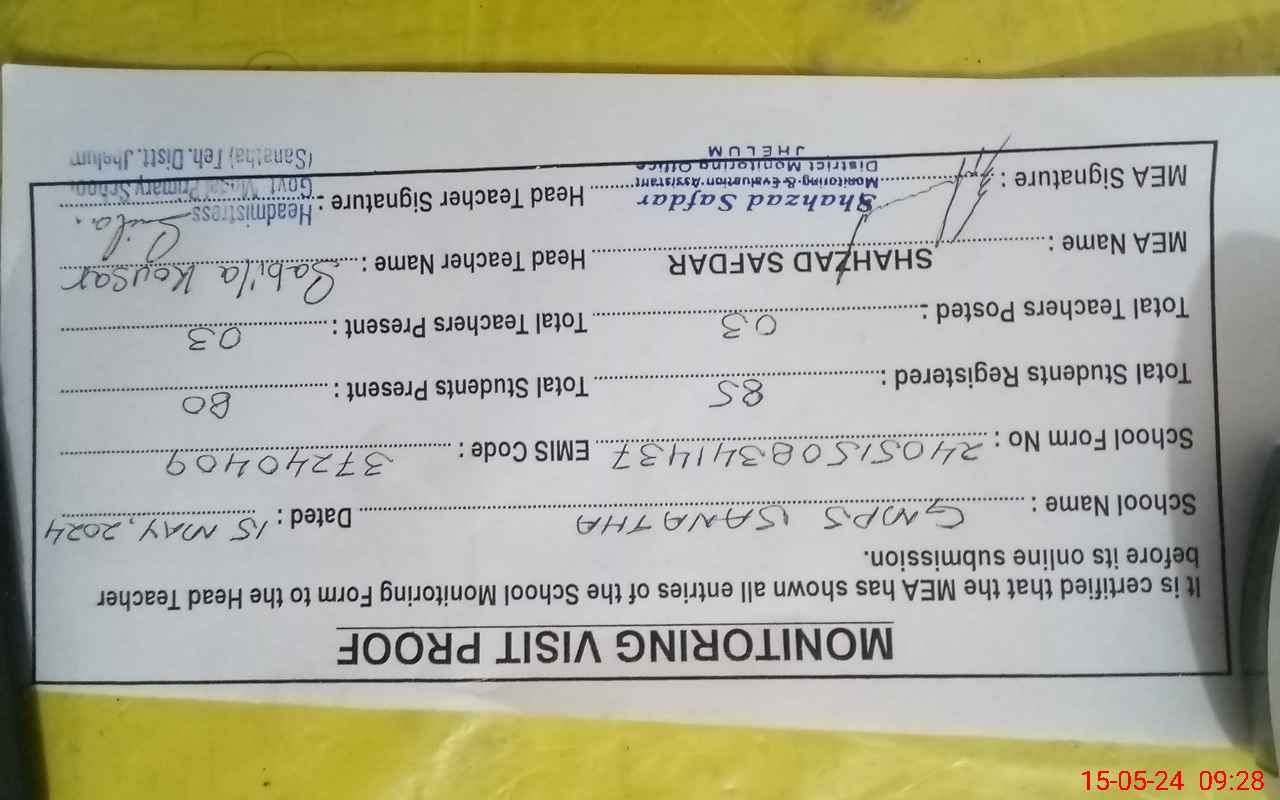 MONITORING VISIT PROOF
It is certified that the MEA has shown all entries of the School Monitoring Form to the Head Teacher
before its online submission.
School Name : GMPS SANATHA Dated : 15 MAY, 2024
School Form No : 2405150834 1437 EMIS Code : 37240409
Total Students Registered : 85 Total Students Present : 80
Total Teachers Posted : 03 Total Teachers Present : 03
MEA Name : SHAHZAD SAFDAR Head Teacher Name : Sabila Kousar
MEA Signature : Head Teacher Signature :
Shahzad Safdar
Monitoring & Evaluation Assistant
District Monitoring Office
JHELUM
Headmistress
Govt. Model Primary School
(Sanatha) Teh. Distt. Jhelum
15-05-24 09:28